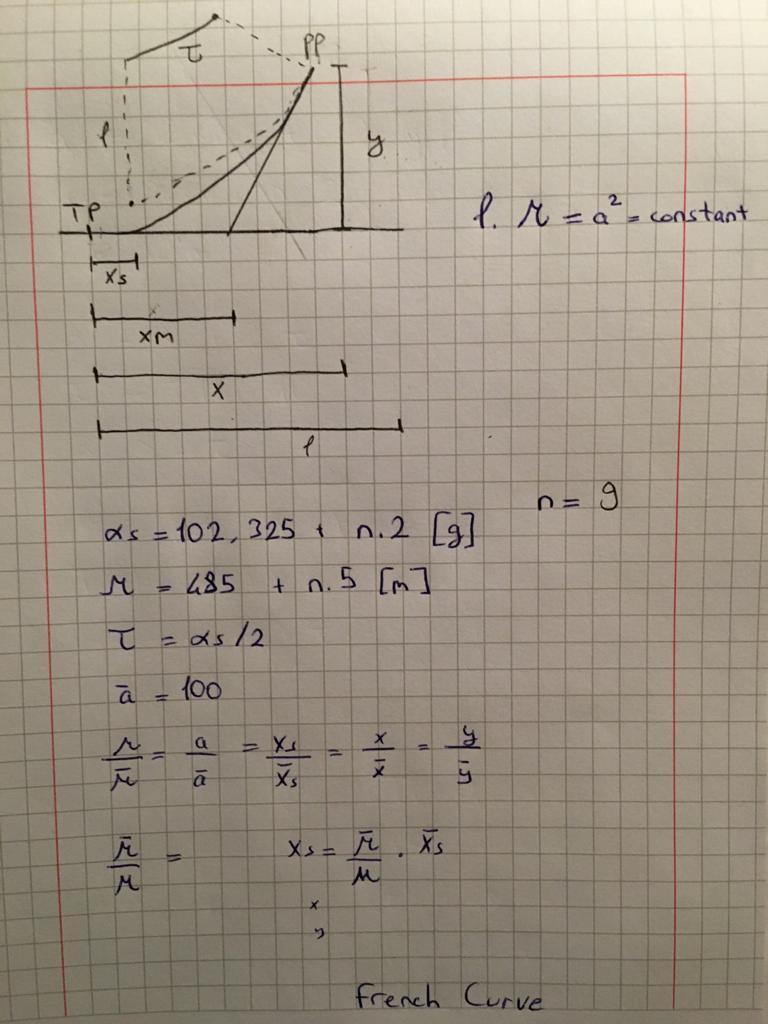 τ
PP
l
y
TP
l . r = a² = constant
xs
xm
x
l
n = 9
αs = 102,325 + n.2 [g]
r = 485 + n.5 [m]
τ = αs/2
ā = 100
r/r̄ = a/ā = xs/x̄s = x/x̄ = y/ȳ
r̄/r = xs = r̄/r . x̄s
x
y
French Curve